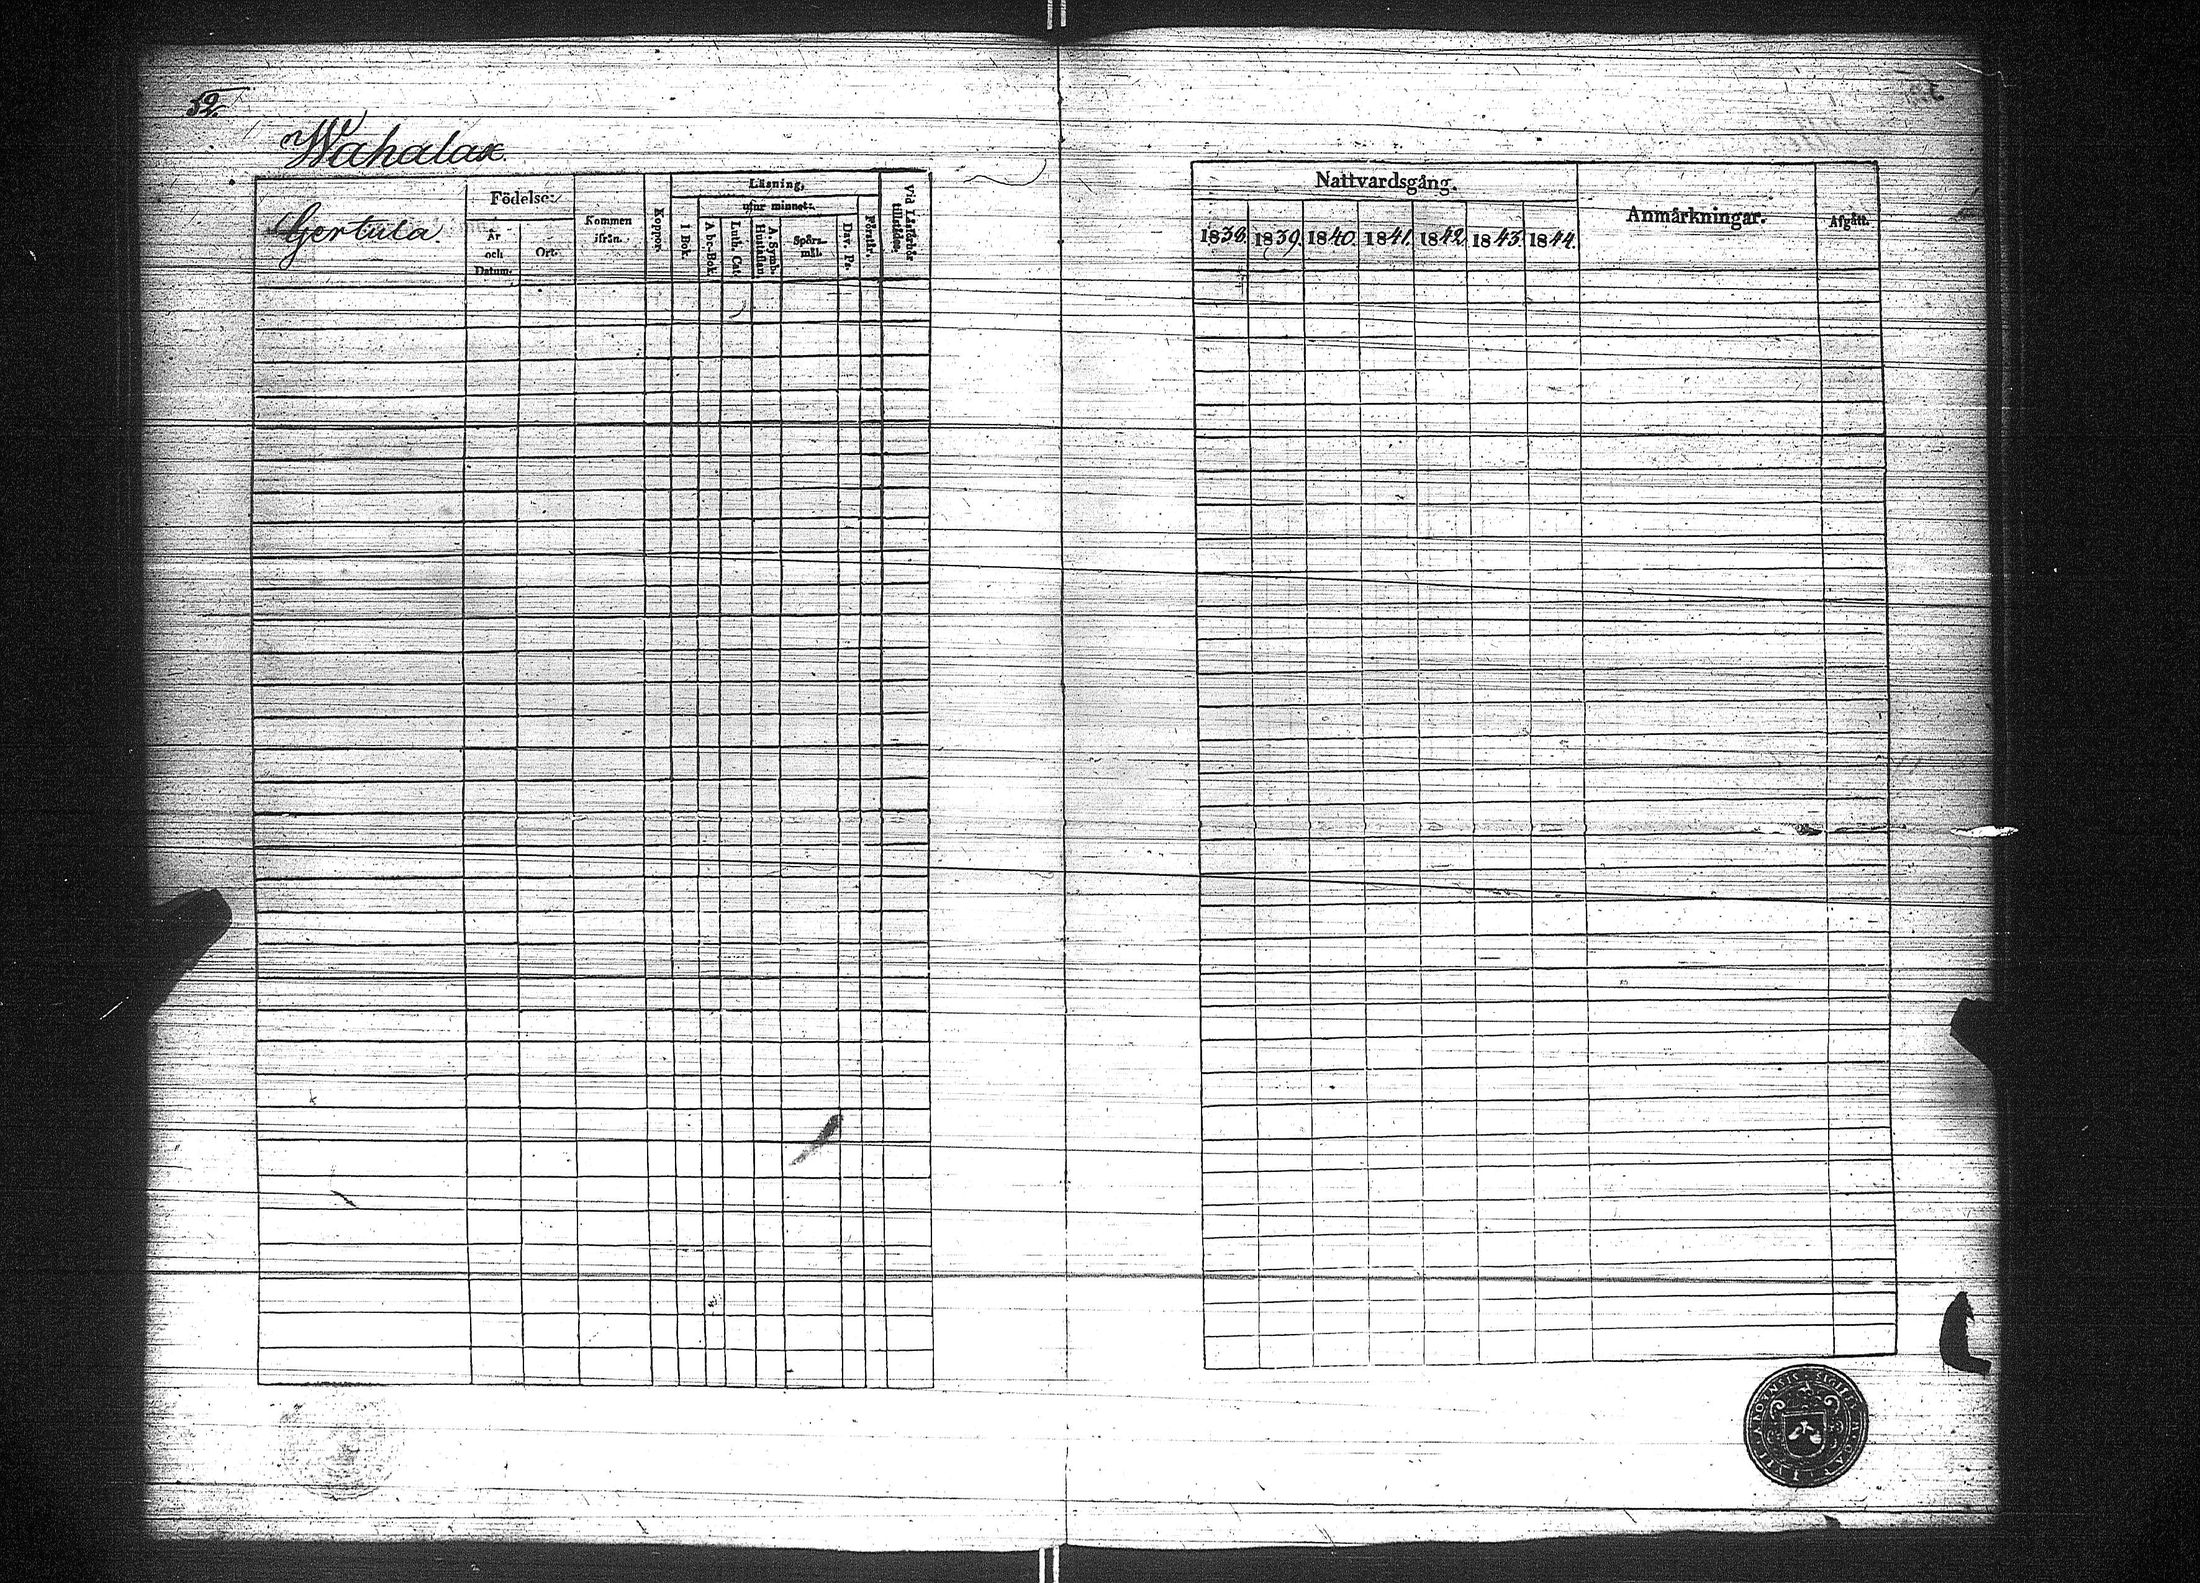 52.
Wahalax.
Gertula.
Födelse:
År och Datum.
Ort.
Kommen ifrån.
Koppor.
Läsning,
utur minnet:
I Bok.
A bc-Bok
Luth. Cat.
A. Symb. Hustaflan
Spörs-mål.
Dav. Ps.
Förstår.
Vid Läsförhör tillstädes.
Nattvardsgång.
1838. 1839. 1840. 1841. 1842. 1843. 1844.
Anmärkningar.
Afgått.